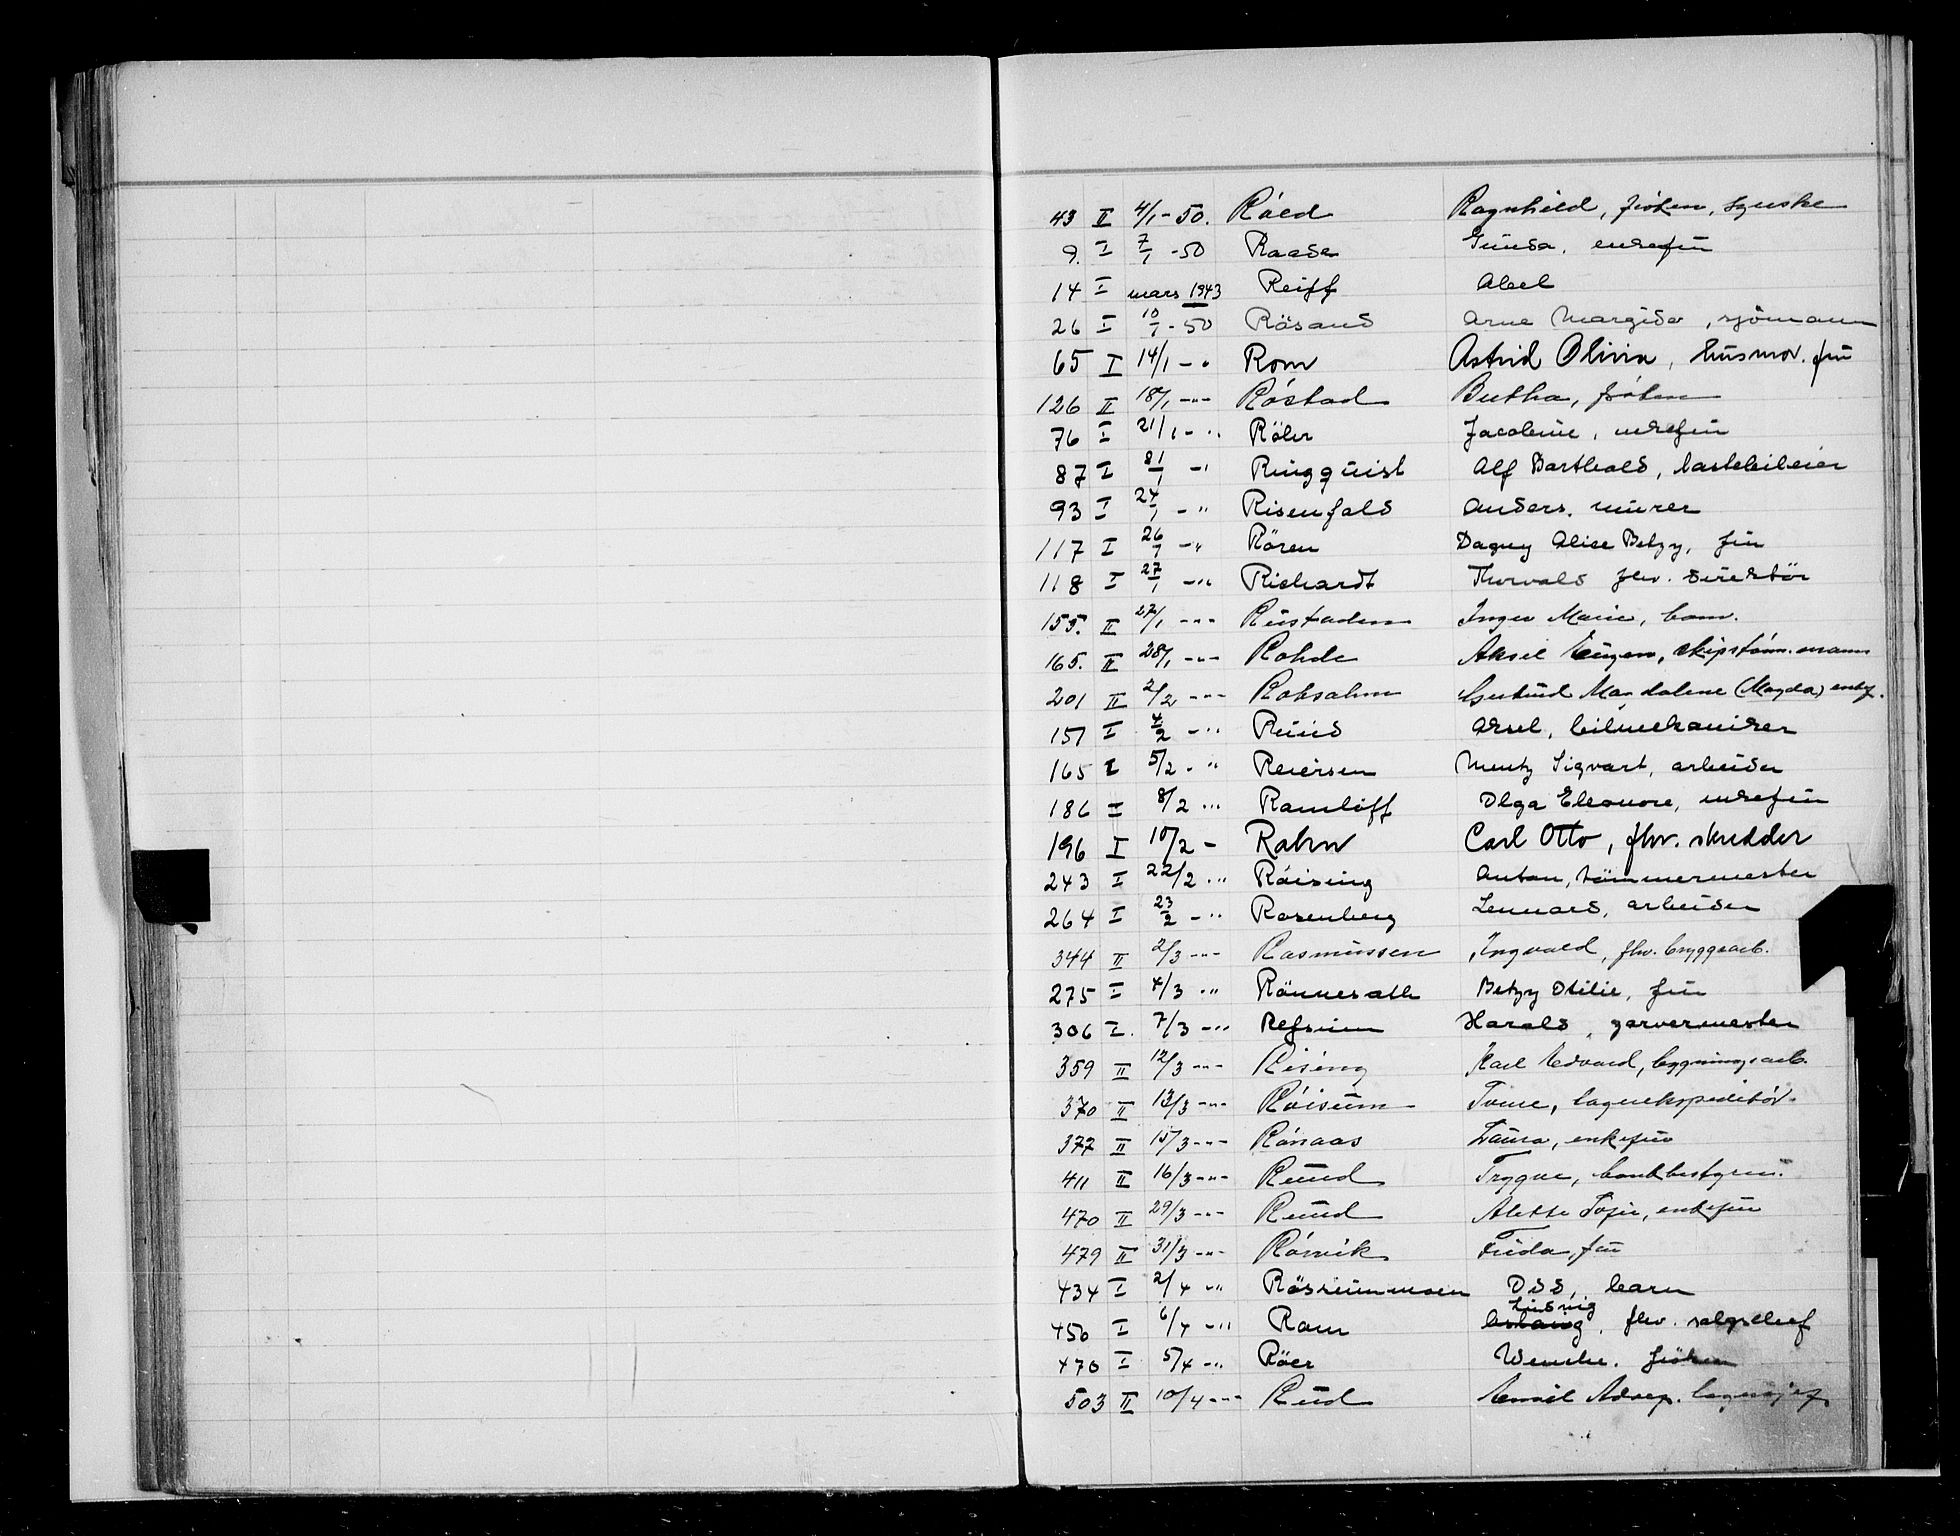 43 II 4/1-50. Róed Ragnhild, fröken, syerske
9. I 7/1 -50 Raade Gunda, enkefrü
14 I mars 1943 Reiff Abel
26 I 10/1 -50 Rösand Arne Margido, sjömann
65 I 14/1 - " Rom Astrid Olivia, husmor. frü
126 II 18/1 -"- Róstad Bertha, fröken
76 I 21/1 - " Röhr Jacobine, enkefrü
87 I 21/1 -" Ringqüist Alf Barthold, lastebileier
93 I 24/1 - " Risenfald Anders. mürer
117 I 26/1 -" Rören Dagny Alice Betzy, frü
118 I 27/1 -" Richardt Thorvald fhv. direktör
155. II 27/1 -"- Rüstaden Inger Marie, barn.
165. II 28/1 -"- Rohde Aksel Eügen, skipstömmermann
201 II 2/2 -"- Roksahm Gertrud Magdalene (Magda) enkef.
151 I 4/2 -" Rüüd Aksel, bilmekaniker
165 I 5/2 - " Reiersen Mentz Sigvart, arbeider
186 I 8/2 " Ramlöff Olga Eleonore, enkefrü
196 I 10/2 - Rahm Carl Otto, fhv. skredder
243 I 22/2 " Röising Anton, tömmermester
264 I 23/2 -" Rosenberg Lennard, arbeider
344 II 2/3 -"- Rasmüssen Ingvald, fhv. bryggearb.
275 I 4/3 " Rönnesath Betzy Otilie, frü
306 I. 7/3 -" Refsüm Harald, garvermester
359 II 12/3 -"- Rising Karl Edvard, bygningsarb.
370 II 13/3 -"- Róisüm Tove, lagerekspeditör.
377 II 15/3 -"- Rónaas Laura, enkefrü
411 II 16/3 -"- Rüüd Trygve, bankbestyrer.
470 II 29/3 -"- Rüüd Alette Sofie, enkefrü
479 II 31/3 -"- Rórvik Frida, frü
434 I 2/4 " Rösrünmoen Odd, barn
450 I 6/4 -" Ram Ludvig, fhv. salgschef
470 I 5/4 -" Röer Wenche. fröken
503 II 10/4 -"- Rüd Emil Adsen. lagersjef